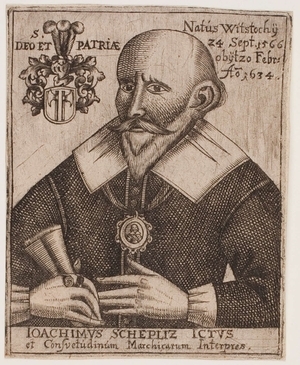 S.
DEO ET PATRIÆ
Natus Witstochÿ
24 Sept. 1566
obÿt 20 Febr.
Aō 1634.
IOACHIMVS SCHEPLIZ ICTVS
et Consvetudinum Marchicarum Interpres.